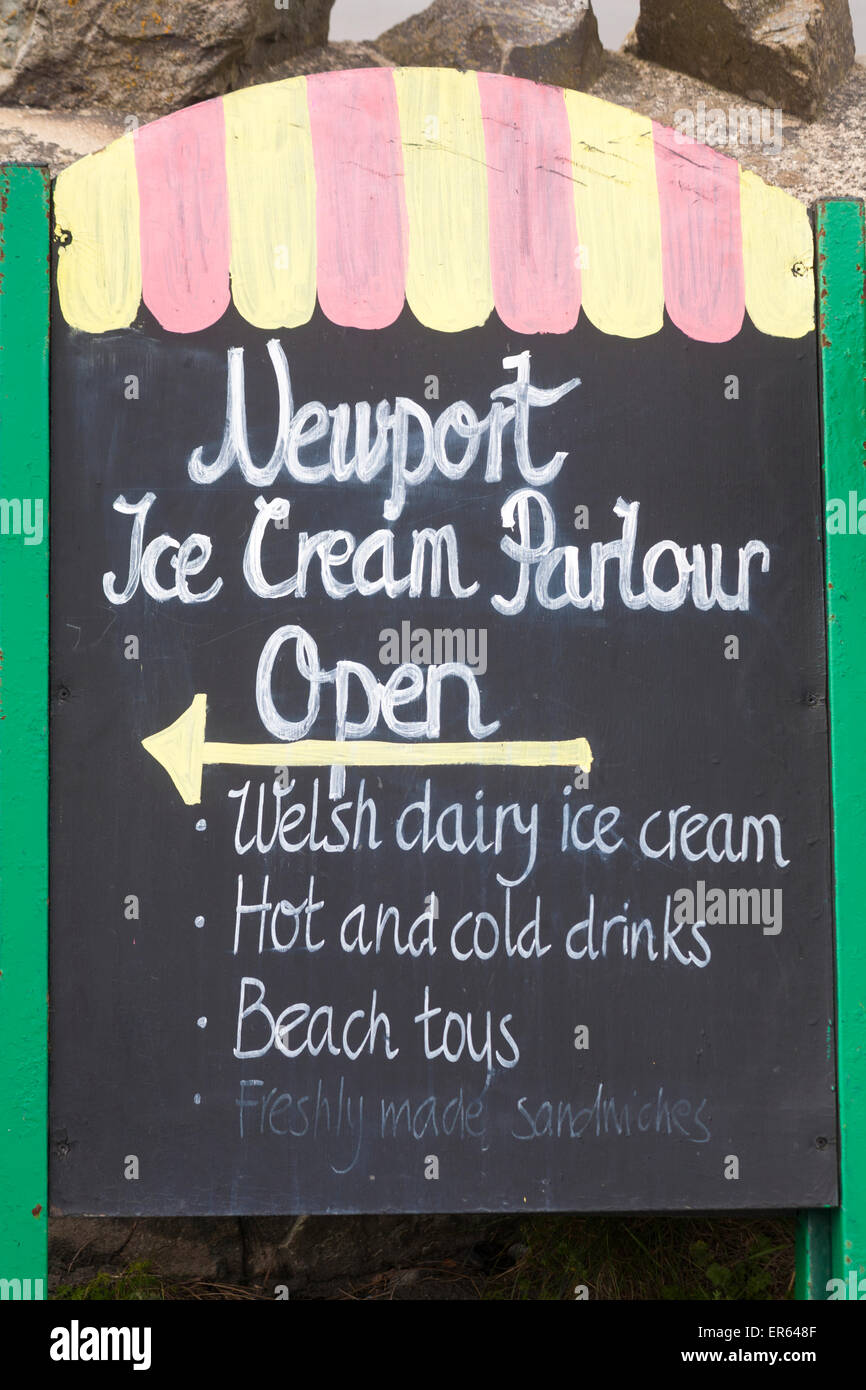 Newport
Ice Cream Parlour
Open
· Welsh dairy ice cream
· Hot and cold drinks
· Beach toys
· Freshly made sandwiches
alamy
Image ID: ER648F
www.alamy.com